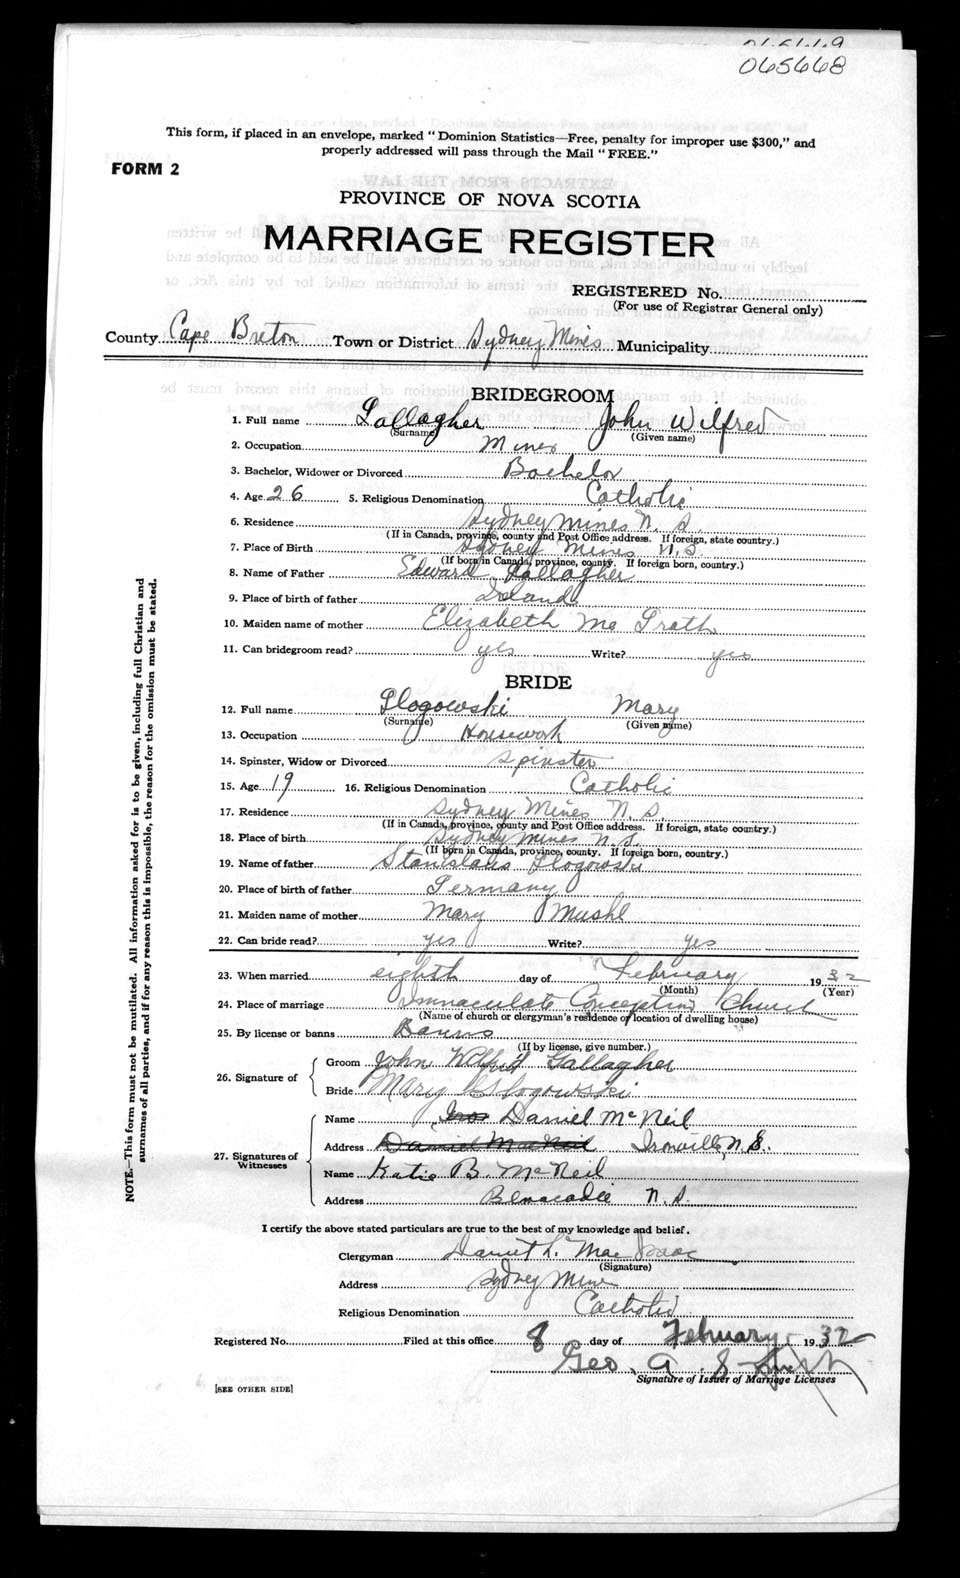 065668
This form, if placed in an envelope, marked "Dominion Statistics—Free, penalty for improper use $300," and
properly addressed will pass through the Mail "FREE."
FORM 2
PROVINCE OF NOVA SCOTIA
MARRIAGE REGISTER
REGISTERED No.
(For use of Registrar General only)
County Cape Breton Town or District Sydney Mines Municipality
BRIDEGROOM
1. Full name Gallagher John Wilfred
(Surname) (Given name)
2. Occupation Miner
3. Bachelor, Widower or Divorced Bachelor
4. Age 26 5. Religious Denomination Catholic
6. Residence Sydney Mines N. S.
(If in Canada, province, county and Post Office address. If foreign, state country.)
7. Place of Birth Sydney Mines N.S.
(If born in Canada, province, county. If foreign born, country.)
8. Name of Father Edward Gallagher
9. Place of birth of father Ireland
10. Maiden name of mother Elizabeth Mc Grath
11. Can bridegroom read? yes Write? yes
BRIDE
12. Full name Glogowski Mary
(Surname) (Given name)
13. Occupation Housework
14. Spinster, Widow or Divorced Spinster
15. Age 19 16. Religious Denomination Catholic
17. Residence Sydney Mines N. S.
(If in Canada, province, county and Post Office address. If foreign, state country.)
18. Place of birth Sydney Mines N. S.
(If born in Canada, province, county. If foreign born, country.)
19. Name of father Stanislaus Glogowski
20. Place of birth of father Germany
21. Maiden name of mother Mary Mushl
22. Can bride read? yes Write? yes
23. When married eighth day of February 1932
(Month) (Year)
24. Place of marriage Immaculate Conception Church
(Name of church or clergyman's residence or location of dwelling house)
25. By license or banns Banns
(If by license, give number.)
26. Signature of Groom John Wilfrid Gallagher
Bride Mary Glogowski
27. Signatures of Witnesses
Name Daniel McNeil
Address Daniel MacNeil Ironville, N.S.
Name Katie B. McNeil
Address Benacadie N. S.
I certify the above stated particulars are true to the best of my knowledge and belief.
Clergyman Daniel L. MacIsaac
(Signature)
Address Sydney Mines
Religious Denomination Catholic
Registered No. Filed at this office 8 day of February 1932
Geo. A.
Signature of Issuer of Marriage Licenses
[SEE OTHER SIDE]
NOTE.—This form must not be mutilated. All information asked for is to be given, including full Christian and
surnames of all parties, and if for any reason this is impossible, the reason for the omission must be stated.